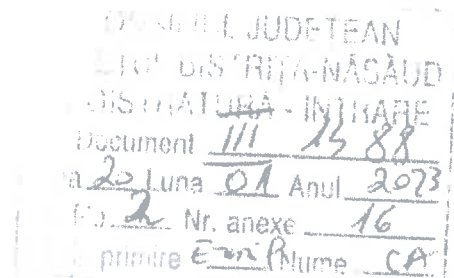 JUDEȚEAN
BISTRIȚA-NĂSĂUD
REGISTRATURĂ - INTRARE
Document III 1588
20 Luna 01 Anul 2023
2 Nr. anexe 16
primire Nume CA